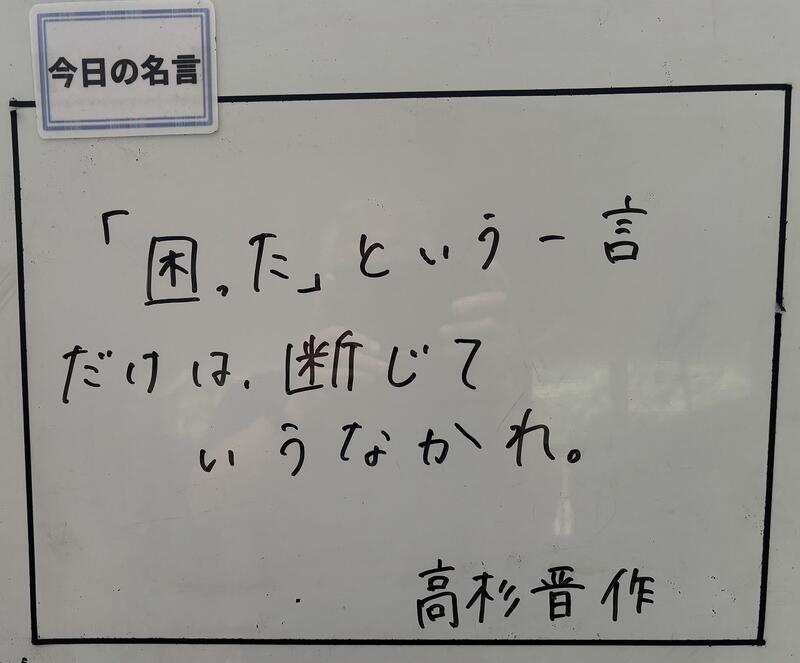 今日の名言
「困った」という一言
だけは、断じて
いうなかれ。
高杉晋作